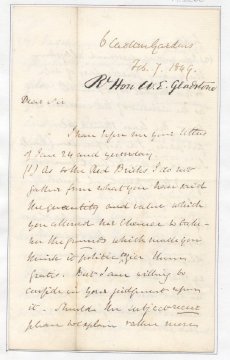 6 Carlton Gardens
Feb. 7. 1869.
Rt Hon W. E. Gladstone
Dear Sir
I have before me your letters
of Jan 24 and yesterday
(1) As to the Red Bricks I do not
gather from what you have said
the quantity and value which
you attained nor the
the grounds which made you
think it politic to give them
gratis. But I am willing to
confide in your judgment upon
it. Should the subject recur
please to explain rather more